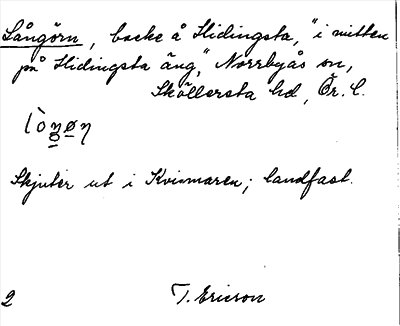 Långörn, backe å Hidingsta, "i mitten
på Hidingsta äng," Norrbyås sn,
Sköllersta hd, Ör. l.
Skjuter ut i Kvismaren; landfast.
2 T. Ericson